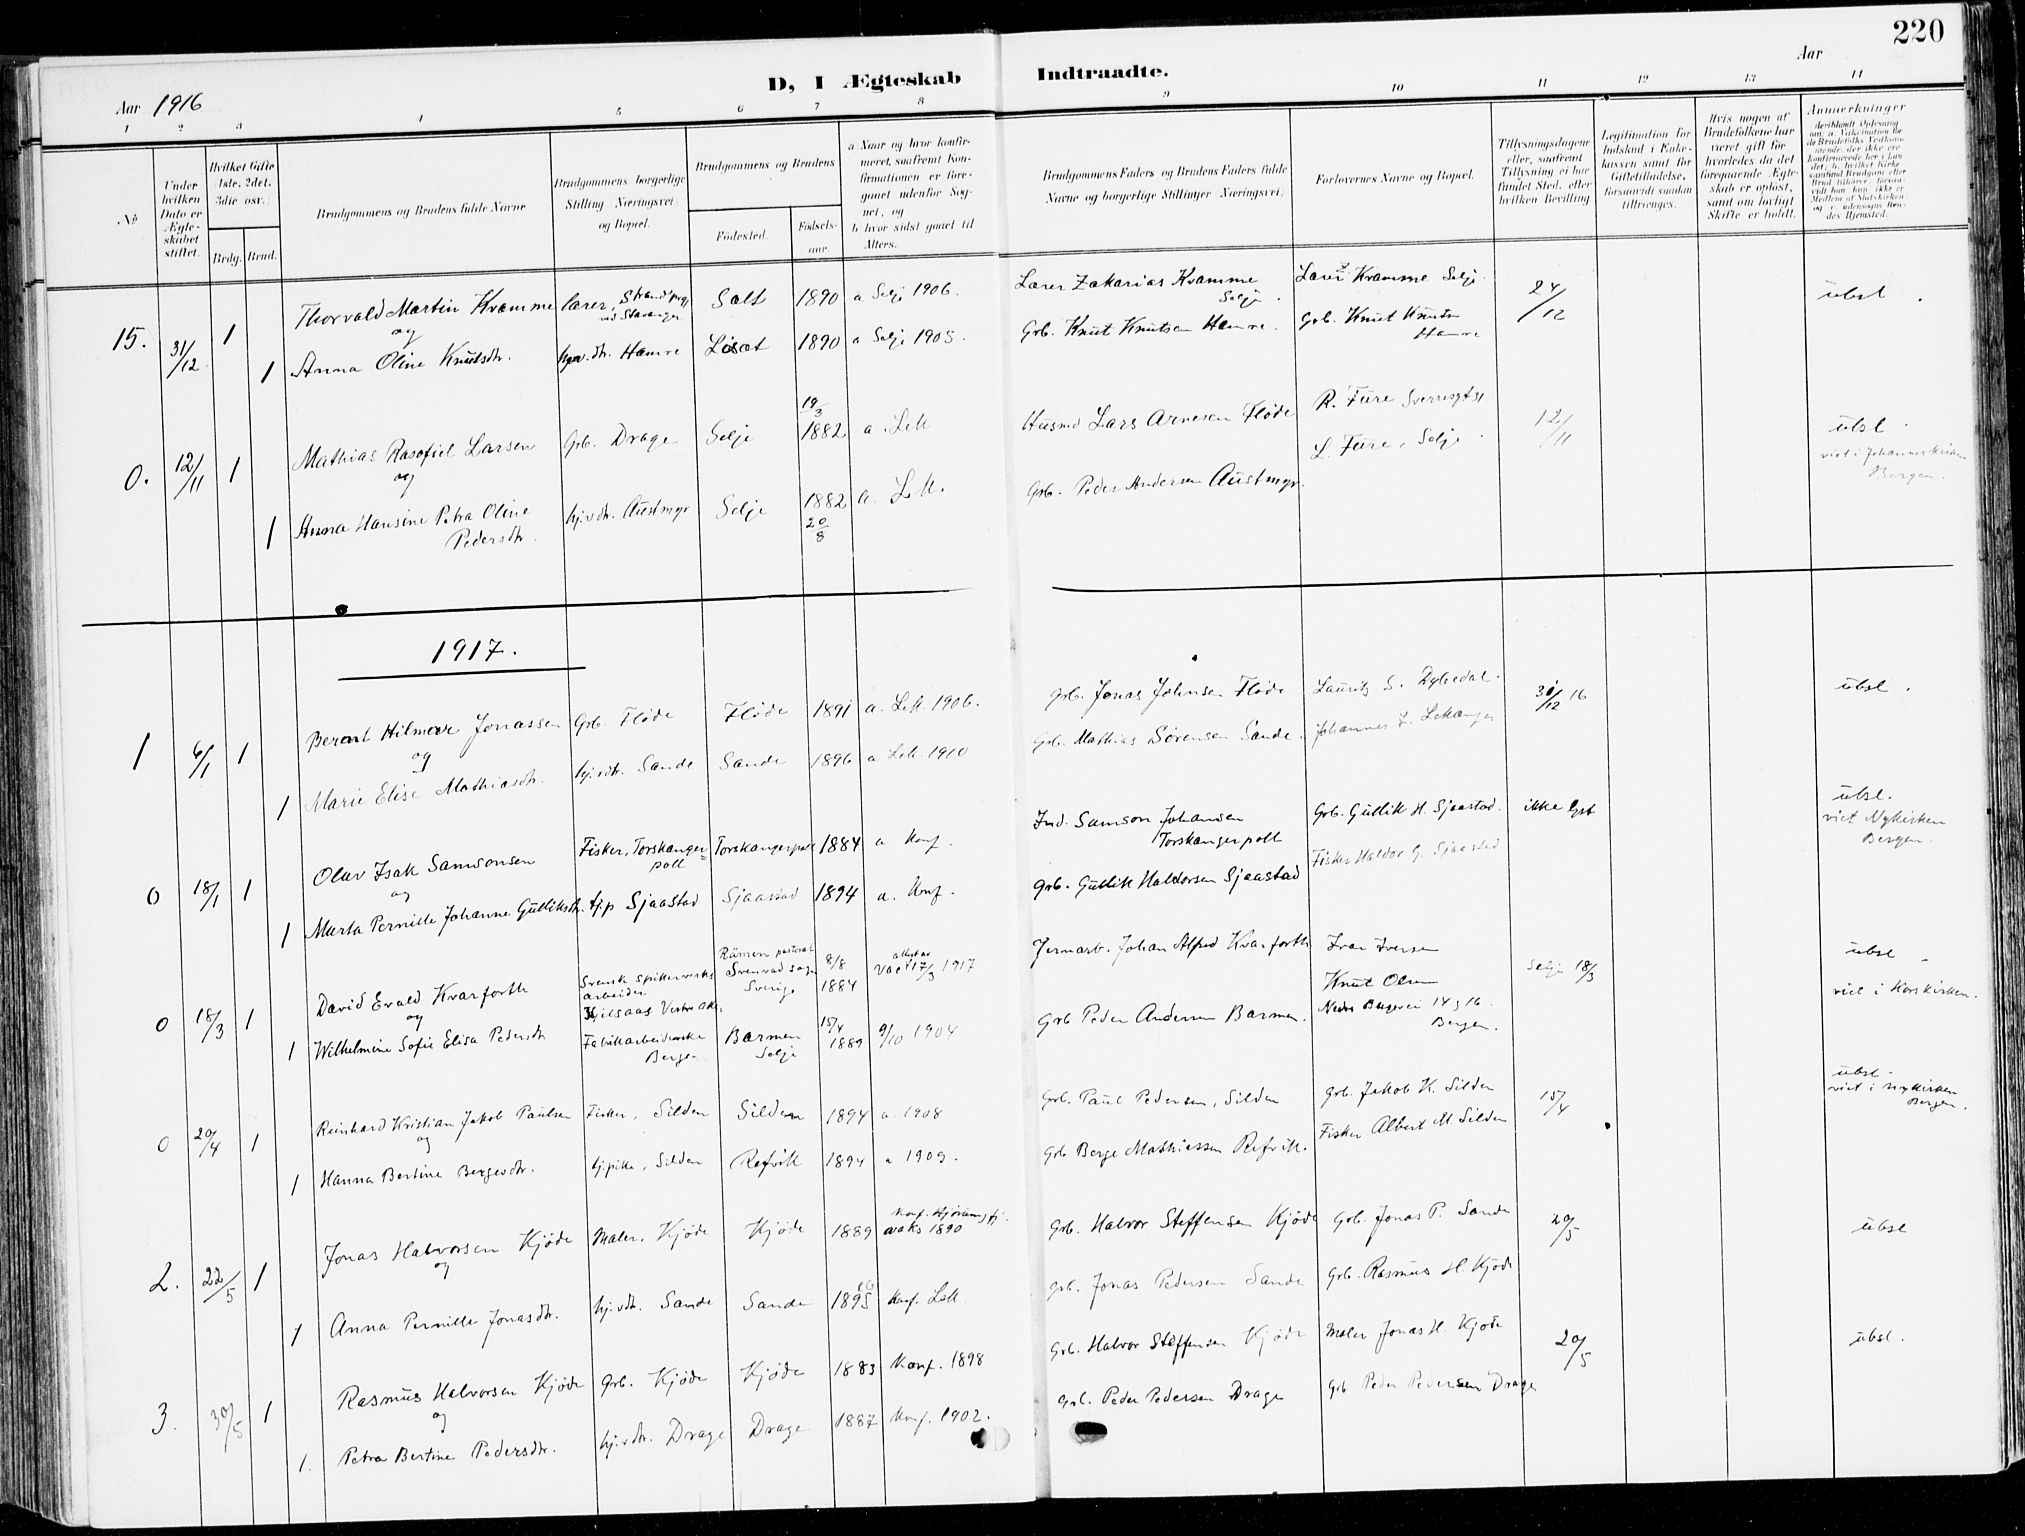 220
D, I Ægteskab Indtraadte.
Aar 1916
Aar
1 2 3 4 5 6 7 8 9 10 11 12 13 14
No
Under hvilken Dato er Ægteskabet stiftet.
Hvilket Gifte 1ste, 2det, 3die osv.
Brdg. Brud.
Brudgommens og Brudens fulde Navne
Brudgommens borgerlige Stilling Næringsvei og Bopæl.
Brudgommens og Brudens
Fødested.
Fødselsaar.
a Naar og hvor konfirmeret, saafremt Konfirmationen er foregaaet udenfor Sognet, og
b hvor sidst gaaet til Alters.
Brudgommens Faders og Brudens Faders fulde Navne og borgerlige Stillinger Næringsvei.
Forlovernes Navne og Bopæl.
Tillysningsdagene eller, saafremt Tillysning ei har fundet Sted, efter hvilken Bevilling
Legitimation for Indskud i Enkekassen samt for Giftetilladelse, forsaavidt saadan tiltrænges.
Hvis nogen af Brudefolkene har været gift før hvorledes da det foregaaende Ægteskab er opløst, samt om lovligt Skifte er holdt.
Anmerkninger
15. 31/12 1 Thorvald Martin Kvamme lærer, Salt 1890 a Selje 1906. Lærer Zakarias Kvamme Selje. Lærer Kvamme Selje. 24/12 ubsl.
og
1 Anna Oline Knutsdtr. Hamre 1890 a Selje 1905. Grb. Knut Knutsen Hamre. Grb. Knut Hamre
0. 12/11 1 Mathias Larsen Grb. Drage Selje 19/3 1882 a. Husmd Lars Arnesen Fløde R. Fure 12/11 ubsl.
og
L. Fure, Selje.
viet i Johanneskirken Bergen.
1 Anna Hansine Petra Oline Pedersdtr. hj.v.dtr. Austmyr Selje 1882 20/8 a. Grb. Peder Andersen Austmyr.
1917.
1 6/1 1 Hilmar Jonassen Grb. Fløde Fløde 1891 a. Lek. 1906. Grb. Jonas Johnsen Fløde Lauritz S. 31/12 16 ubsl.
og
1 Marie Elise Mathiasdtr. hj.v.dtr. Sande Sande 1896 a Lek. 1910 Grb. Mathias Sørensen Sande. Johannes
0 18/1 1 Olav Isak Samsonsen Fisker, Torskangerpoll Torskangerpoll 1884 a Konf. Ind. Samson Johansen Torskangerpoll Grb. Gullik H. Sjaastad. ikke lyst ubsl. viet Nykirken Bergen.
og
1 Marta Pernille Johanne Gulliksdtr. Sjaastad Sjaastad 1894 a. Konf. Grb. Gullik Haldorsen Sjaastad Fisker Haldor G. Sjaastad
0 18/3 1 David Evald Kvarforth Svensk arbeider Sverige 8/8 1884 17/3 1917 Johan Alfred Kvarforth Ivar Iversen Selje 18/3 ubsl
og
Knut Olsen
viet i Korskirken.
1 Wilhelmine Sofie Elisa Pedersdtr Fabrikarbeiderske Bergen Barmen Selje 15/4 1889 9/10 1904 Grb Peder Andersen Barmen. Bergen.
0 20/4 1 Reinhard Kristian Jakob Paulsen Fisker, Silden Silden 1894 a. 1908 Grb. Paul Pedersen, Silden Grb. Jakob K. Silden 15/4 ubsl. viet i Nykirken Bergen.
og
1 Hanna Bertine Bergesdtr. hj.pike, Silden Refvik 1894 a 1909. Grb Berge Mathiassen Refvik. Fisker Albert M. Silden
2. 22/5 1 Jonas Halvorsen Kjøde Maler, Kjøde Kjøde 1889 vaks 1890 Grb. Halvor Steffensen Kjøde Grb. Jonas P. Sande 20/5 ubsl
og
1 Anna Pernille Jonasdtr. hj.v.dtr. Sande Sande 1895 Konf. Lek. Grb. Jonas Pedersen Sande Grb. Rasmus H. Kjøde
3. 30/5 1 Rasmus Halvorsen Kjøde Grb. Kjøde Kjøde 1883 Konf. 1898 Grb. Halvor Steffensen Kjøde Maler Jonas H. Kjøde 20/5 ubsl.
og
1. Petra Bertine Pedersdtr. hj.v.dtr. Drage Drage 1887 Konf. 1902. Grb. Peder Pedersen Drage Grb Peder Pedersen Drage